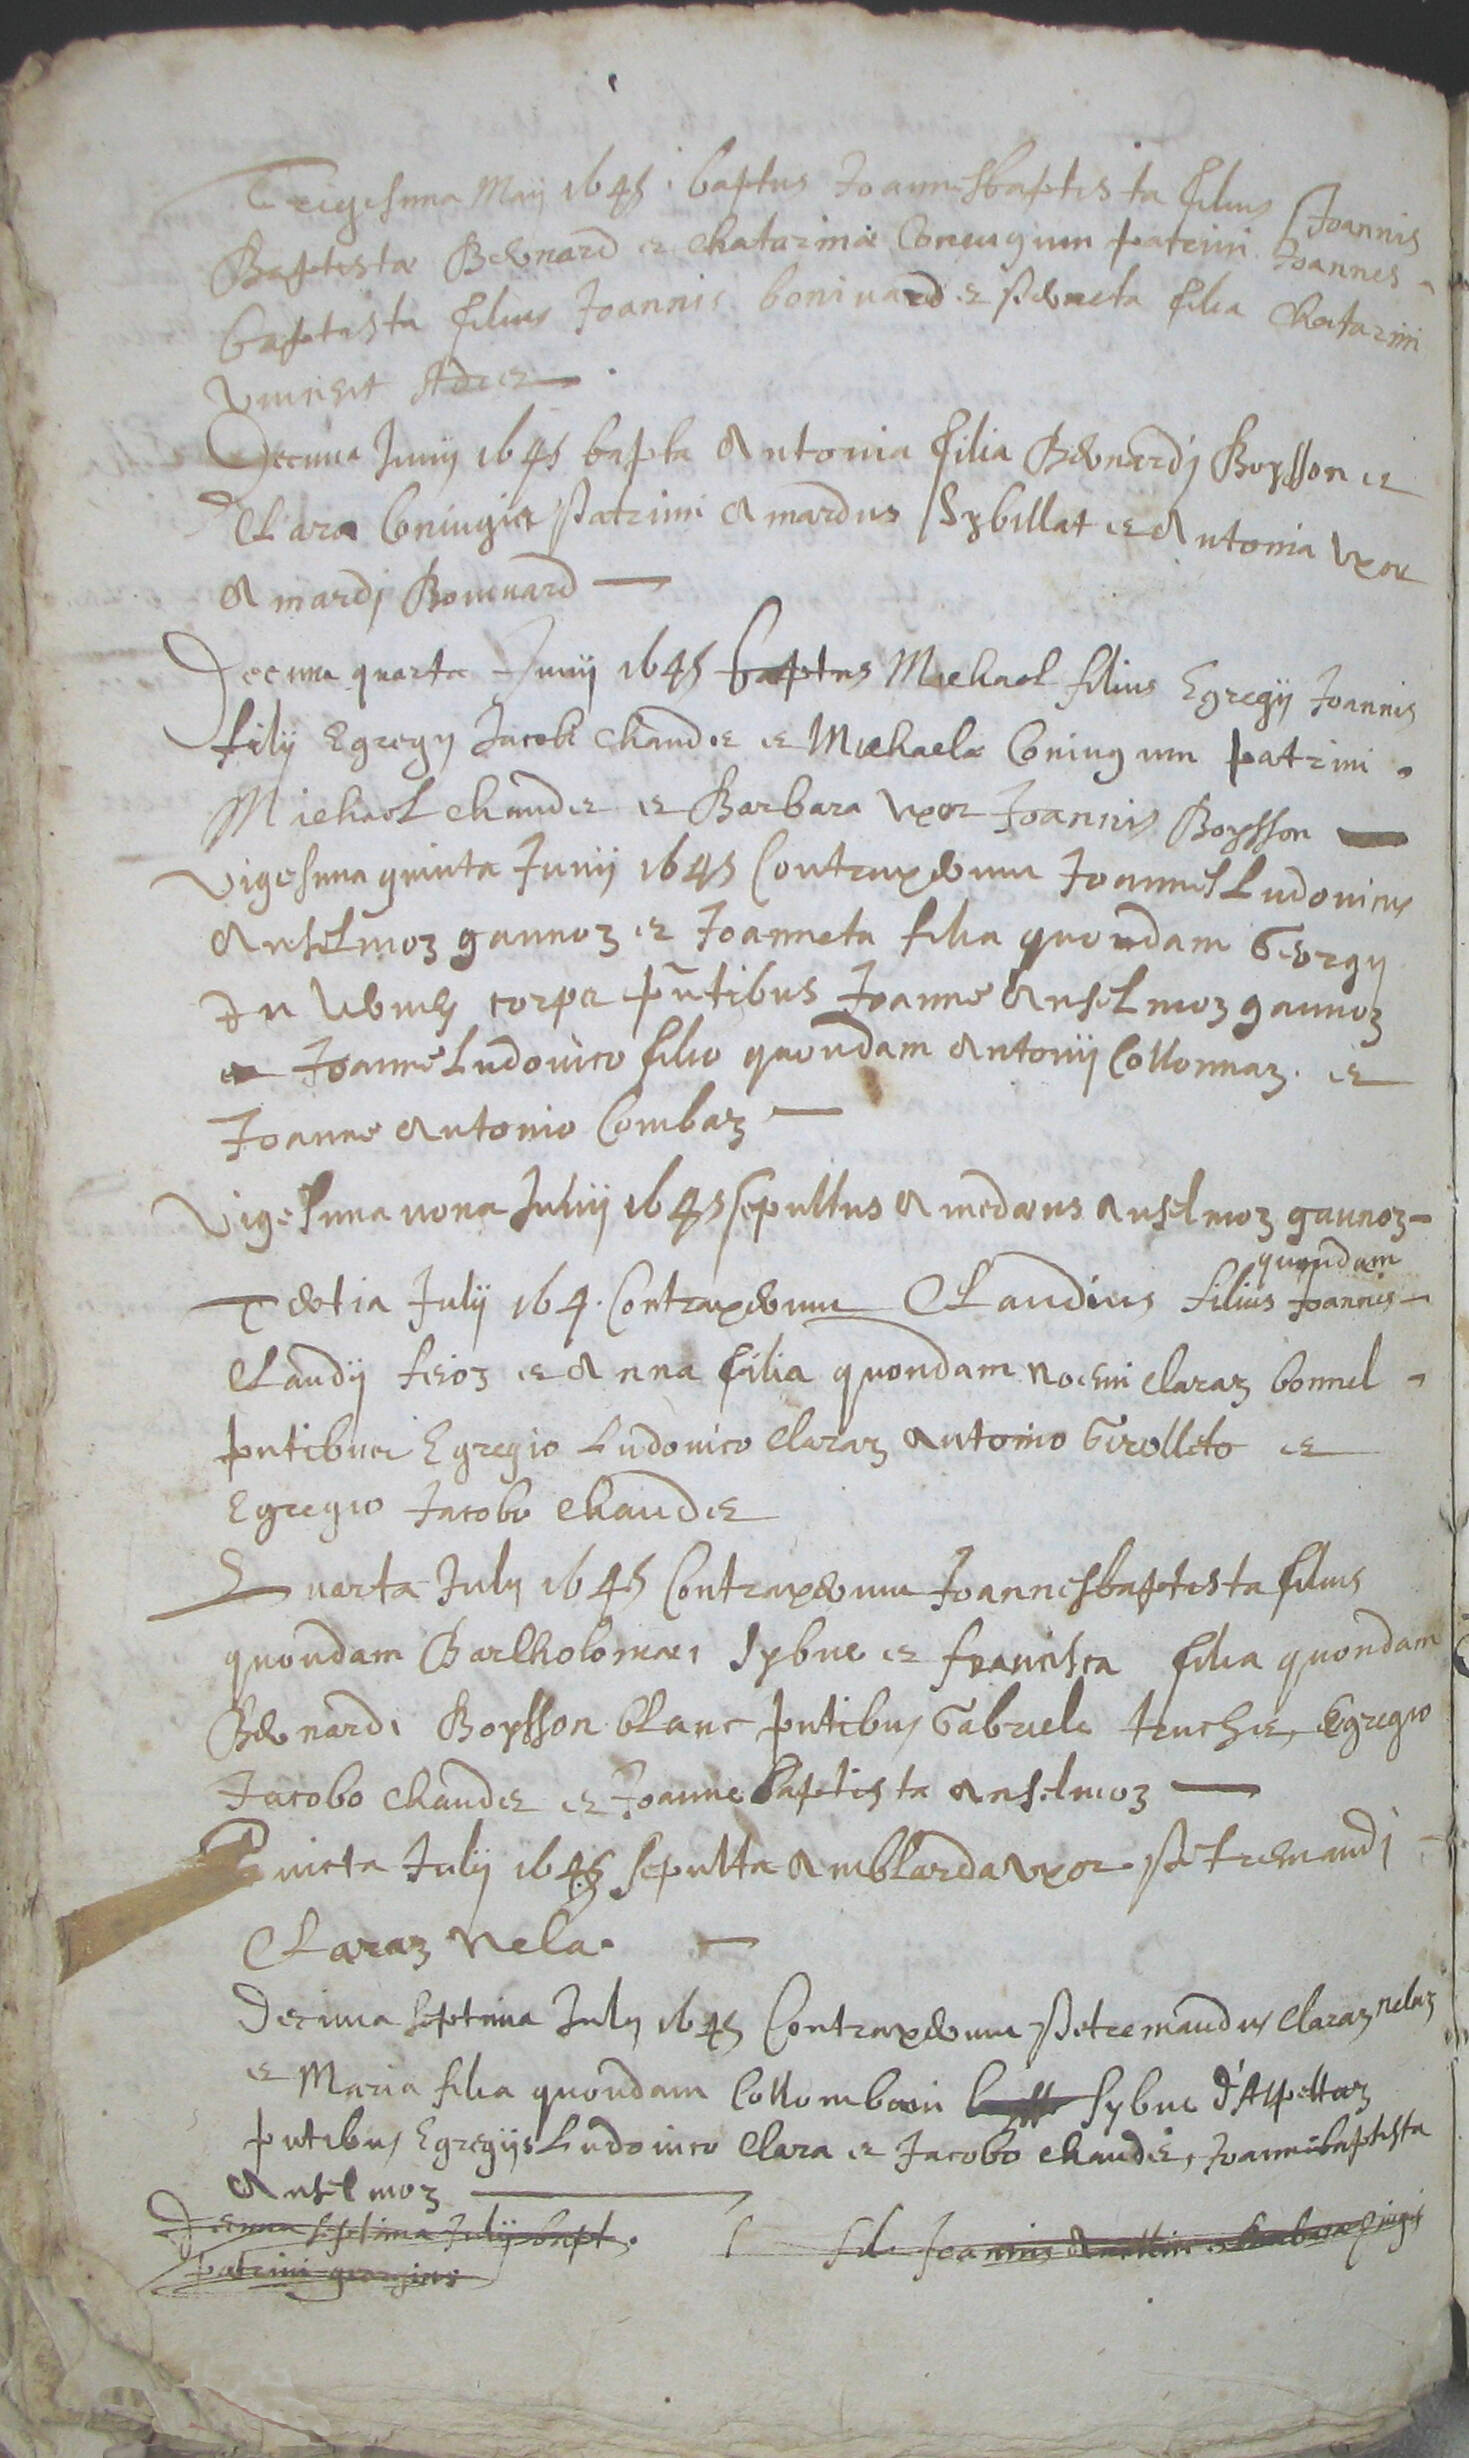 Trigesima Maij 1645 baptus Joannesbaptista filius Joannis
Baptistæ Bernard et Chatarinæ Coniugum patrini Joannes
baptista filius Joannis bonivard et perneta filia Chatarini
vincent Adet
Decima Junij 1645 bapta Antonia filia Bernardj Boysson et
Claræ Coniugu Patrini Amardus Sybillat et Antonia Uxor
Amardj Bonivard
Decima quarta Junij 1645 baptus Michael filius Egregij Joannis
filij Egregij Jacobi Chaudet et Michaelæ Coniugum patrini
Michael Chaudet et Barbara Uxor Joannis Boysson
Vigesima quinta Junij 1645 Contraxerunt Joannes Ludovicus
Anselmoz gaunoz et Joanneta filia quondam Georgij
corpet pñtibus Joanne Anselmoz gaunoz
et Joanne Ludovico filio quondam Antonij Collonnaz et
Joanne Antonio Combaz
Vigesima nona Junij 1645 sepultus Amedæus Anselmoz gaunoz
quondam
Tertia Julij 164. Contraxerunt Claudius filius Joannis
Claudij et Anna filia quondam Claraz bonnel
pntibus Egregio Ludovico Claraz Antonio Girolleto et
Egregio Jacobo Chaudet
Quarta Julij 1645 Contraxerunt Joannesbaptista filius
quondam Bartholomæi Sybue et francisca filia quondam
Bernardi Boysson blanc pntibus Gabriele truchet, Egregio
Jacobo Chaudet et Joanne baptista Anselmoz
Quinta Julij 1645 sepulta Amblarda Uxor Petremandj
Claraz Nela
Decima septima Julij 1645 Contraxerunt Petremandus Claraz nelaz
et Maria filia quondam Collombani Sybue d'Aspettaz
pntibus Egregijs Ludovico Clara et Jacobo Chaudet, Joannebaptista
Anselmoz
Decima septima Julij bapt. fil Joannis
patrini georgius